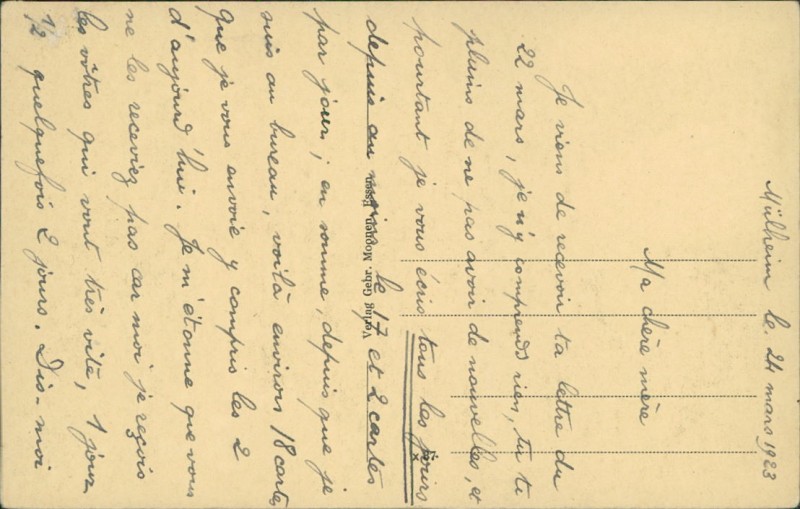 Mülheim le 24 mars 1923
Ma chère mère
Je viens de recevoir ta lettre du
22 mars, je n'y comprends rien, tu te
plains de ne pas avoir de nouvelles, et
pourtant je vous écris tous les jours
depuis au le 17 et 2 cartes
par jour; en somme, depuis que je
suis au bureau, voilà environ 18 cartes
que je vous envoie y compris les 2
d'aujourd'hui. Je m'étonne que vous
ne les receviez pas car moi je reçois
les vôtres qui vont très vite, 1 jour
1/2 quelquefois 2 jours. Dis-moi
Verlag Gebr. Moppen, Essen.